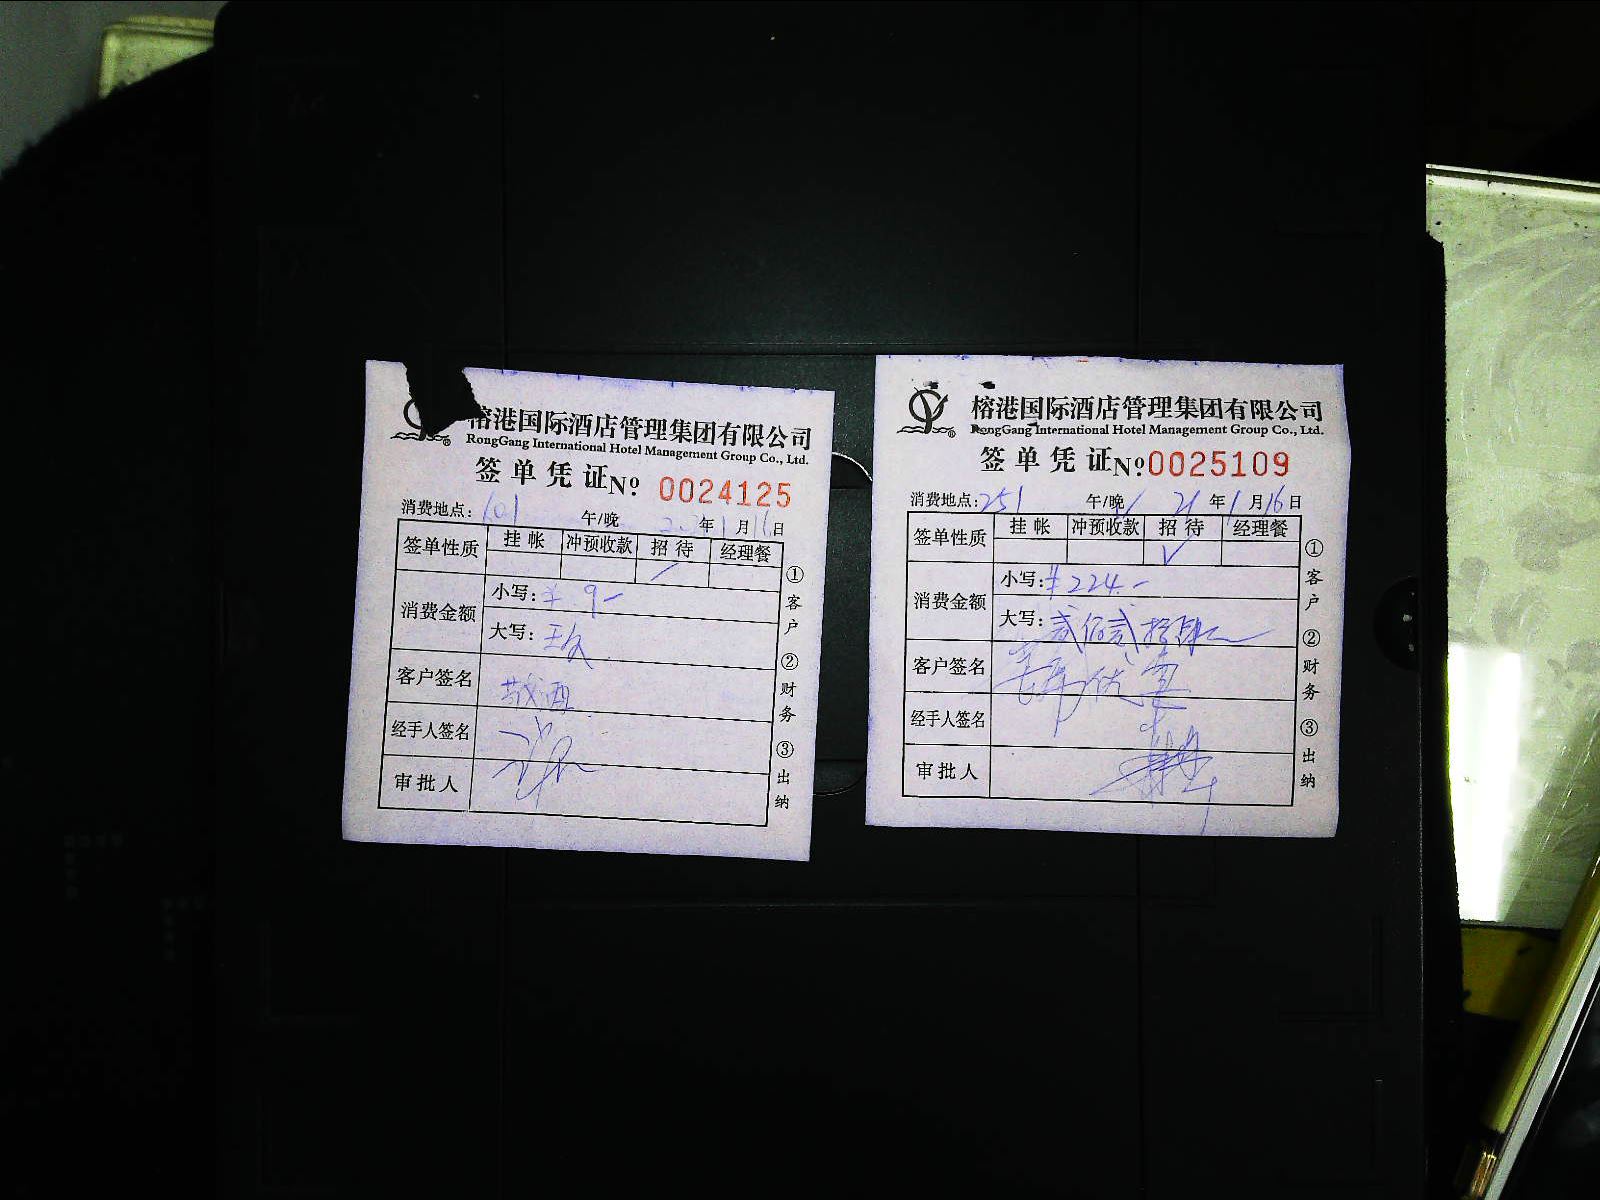 榕港国际酒店管理集团有限公司
RongGang International Hotel Management Group Co., Ltd.
签单凭证 № 0024125
消费地点: 101 午/晚 年1月16日
签单性质 挂帐 冲预收款 招待 经理餐
消费金额
小写: ¥ 9-
大写:
客户签名 敬酒
经手人签名
审批人
①客户 ②财务 ③出纳
榕港国际酒店管理集团有限公司
RongGang International Hotel Management Group Co., Ltd.
签单凭证 № 0025109
消费地点: 251 午/晚 21年1月16日
签单性质 挂帐 冲预收款 招待 经理餐
√
消费金额
小写: ¥224.-
大写: 贰佰贰拾肆元
客户签名
经手人签名
审批人
①客户 ②财务 ③出纳